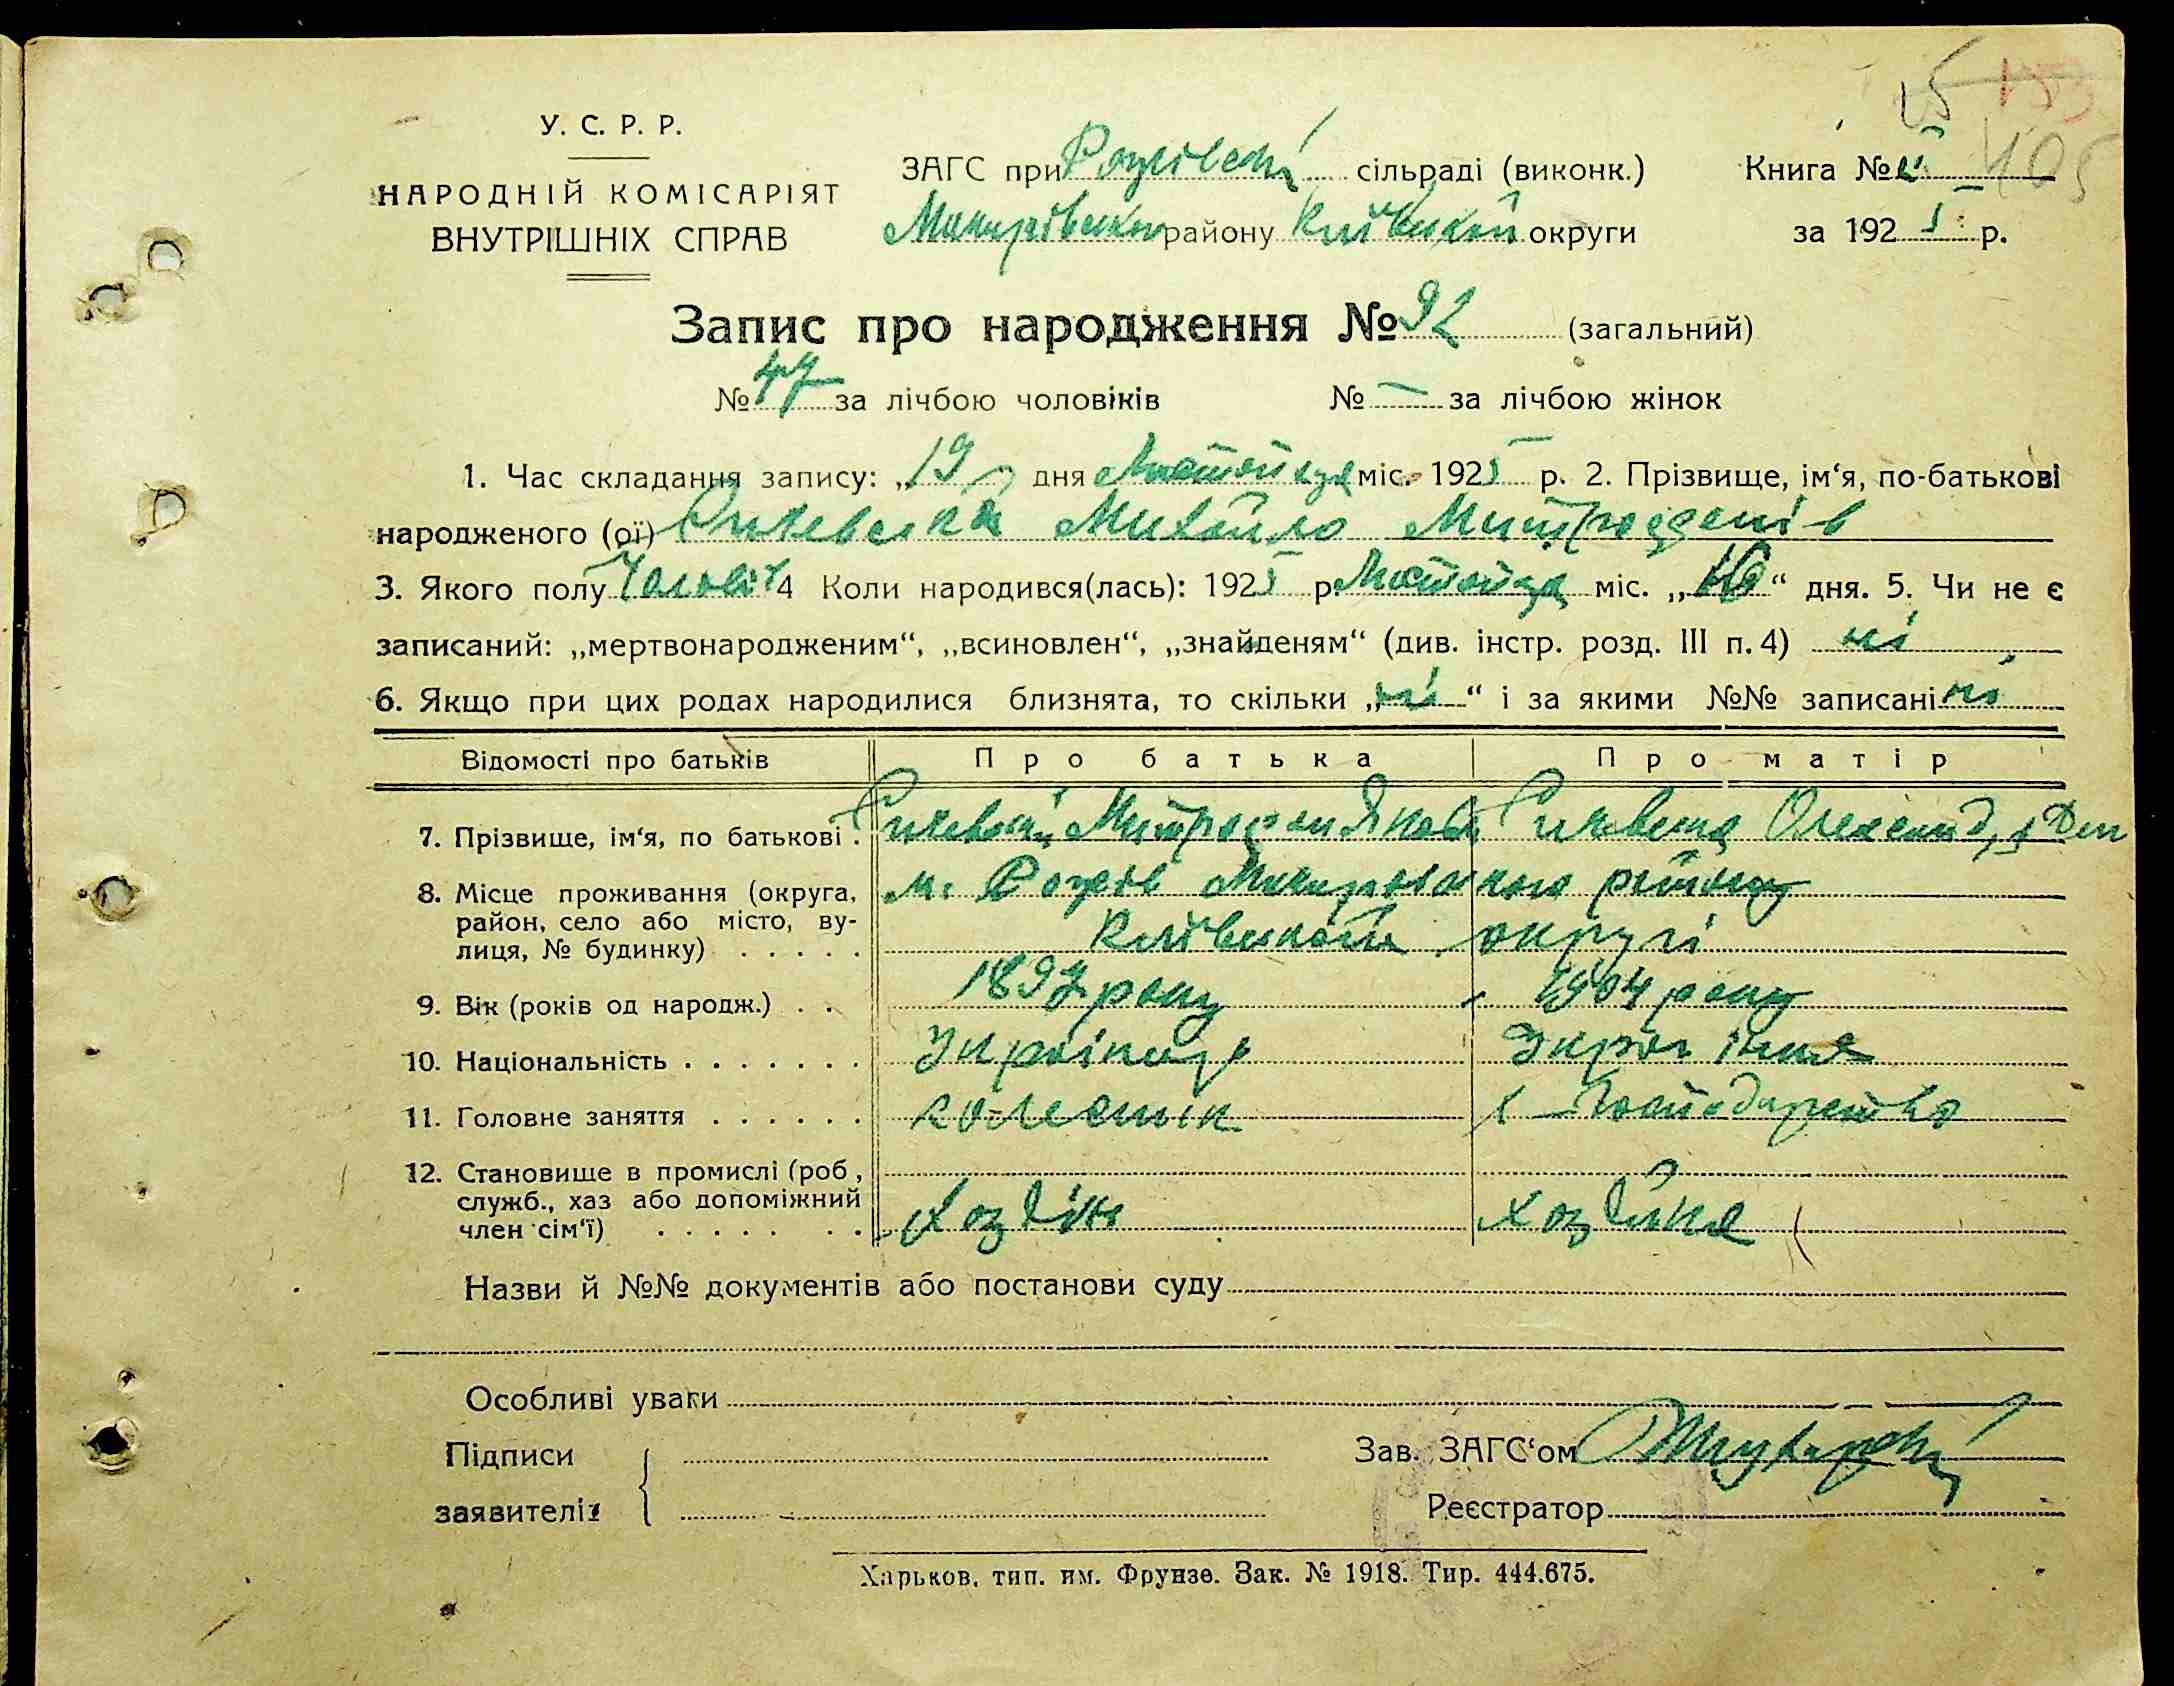 У. С. Р. Р.
НАРОДНІЙ КОМІСАРІЯТ
ВНУТРІШНІХ СПРАВ
ЗАГС при Рожівскі сільраді (виконк.)
Макарівского району Київської округи
Книга №
за 1925 р.
Запис про народження № 92 (загальний)
№ 47 за лічбою чоловіків № — за лічбою жінок
1. Час складання запису: „19" дня Листопада міс. 1925 р. 2. Прізвище, ім‘я, по-батькові
народженого (ої) Михайло
3. Якого полу Чоловіч 4 Коли народився(лась): 1925 р. Листопада міс. „ “ дня. 5. Чи не є
записаний: „мертвонародженим“, „всиновлен“, „знайденям“ (див. інстр. розд. III п. 4) ні
6. Якщо при цих родах народилися близнята, то скільки „ні“ і за якими №№ записані ні
Відомості про батьків Про батька Про матір
7. Прізвище, ім‘я, по батькові .
8. Місце проживання (округа,
район, село або місто, ву-
лиця, № будинку) . . . . .
м. Рожів Макарівського району
Київської округи
9. Вік (років од народж.) . . 1897 року 1904 року
10. Національність . . . . . . . Українець Українка
11. Головне заняття . . . . . . колесник Господарство
12. Становище в промислі (роб,
служб., хаз або допоміжний
член сім‘ї) . . . . . . . хозяін хозяйка
Назви й №№ документів або постанови суду
Особливі уваги
Підписи
заявителів
Зав. ЗАГС‘ом
Реєстратор
Харьков, тип. им. Фрунзе. Зак. № 1918. Тир. 444.675.